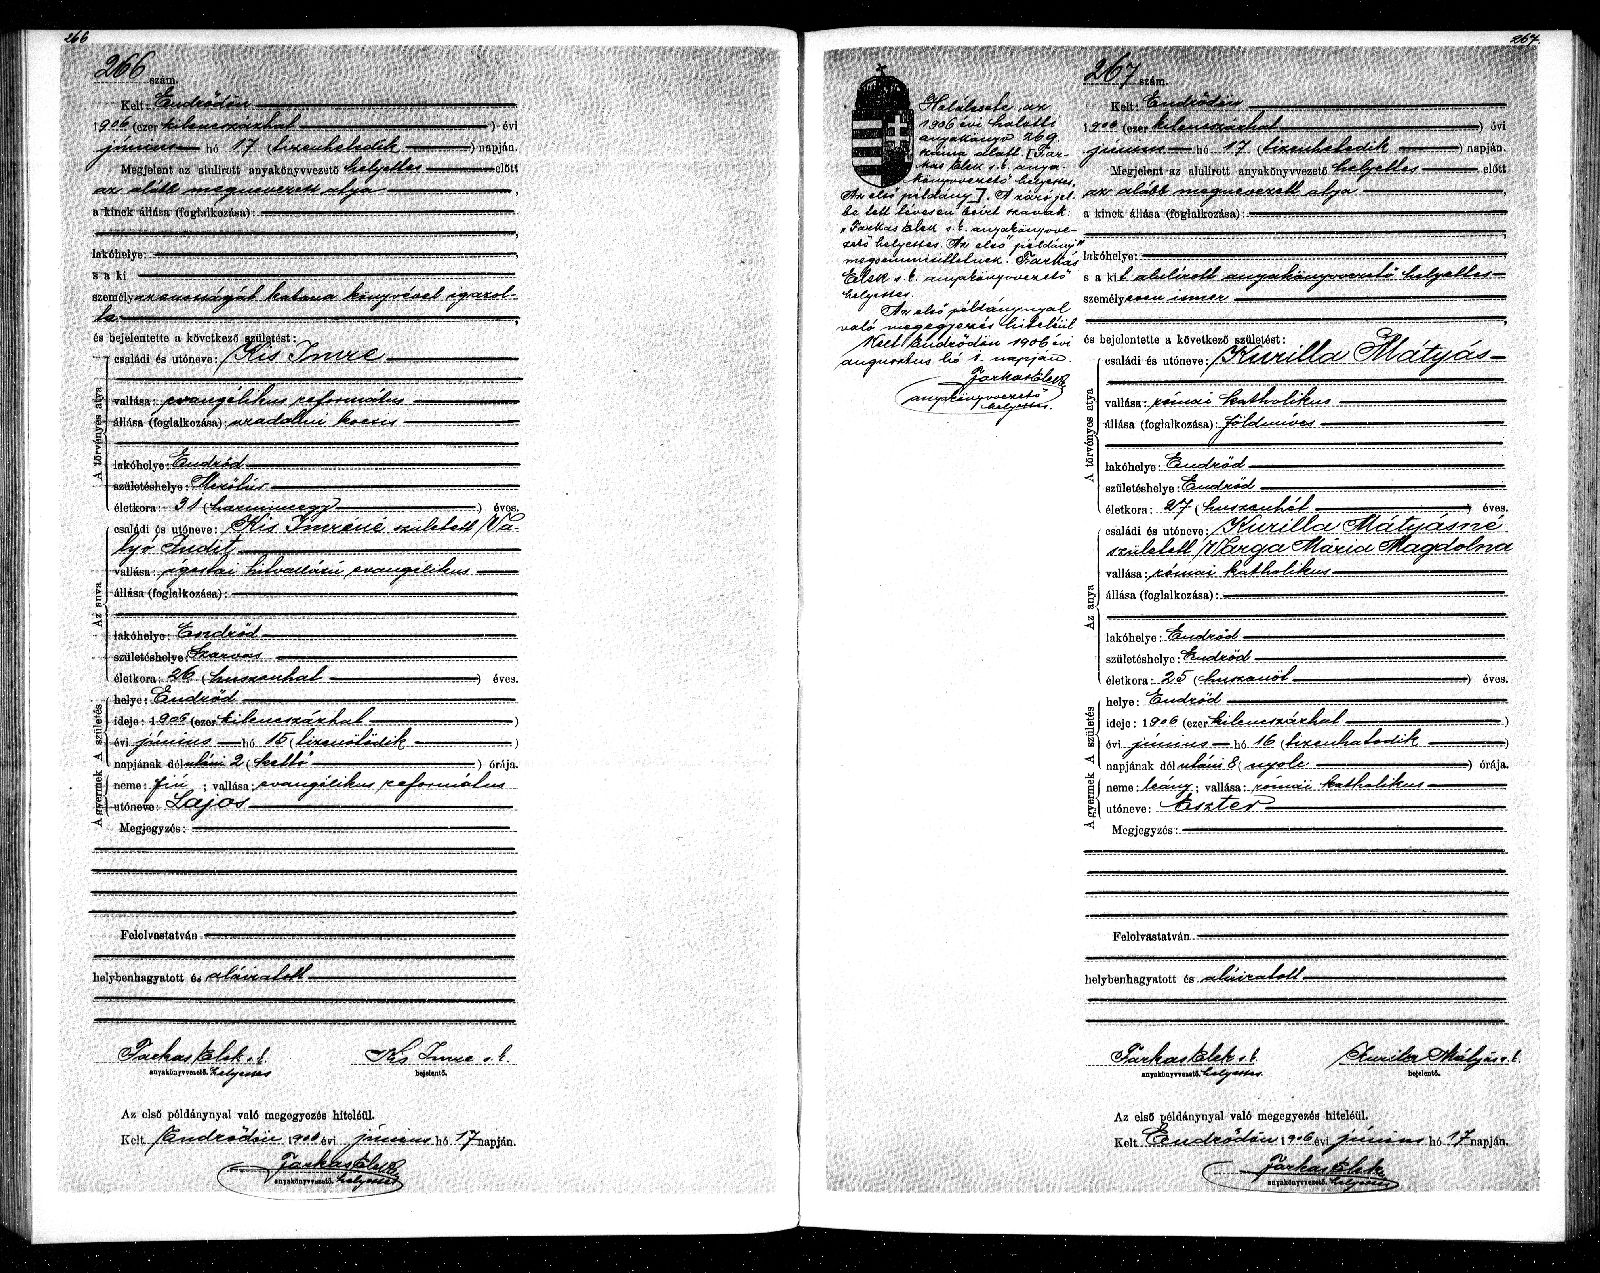 266
266 szám.
Kelt: Endrődön
1906 (ezer kilencszázhat ) évi
június hó 17 (tizenhetedik ) napján.
Megjelent az alulirott anyakönyvvezető helyettes előtt
az alább megnevezett atya ,
a kinek állása (foglalkozása):
lakóhelye:
s a ki
személyazonosságát katona könyvével igazol-
ta ,
és bejelentette a következő születést:
A törvényes atya
családi és utóneve: Kis Imre
vallása: evangélikus református
állása (foglalkozása): uradalmi kocsis
lakóhelye: Endrőd
születéshelye:
életkora: 31 (harminczegy ) éves.
Az anya
családi és utóneve: Kis Imréné született Va-
lyó Judit
vallása: ágostai hitvallású evangélikus
állása (foglalkozása):
lakóhelye: Endrőd
születéshelye: Szarvas
életkora: 26 (huszonhat ) éves.
A születés
helye: Endrőd
ideje: 1906 (ezer kilencszázhat )
évi június hó 15 (tizenötödik )
napjának dél utáni 2 (kettő ) órája.
A gyermek
neme: fiú ; vallása: evangélikus református
utóneve: Lajos
Megjegyzés:
Felolvastatván
helybenhagyatott és aláiratott
Farkas Elek s. k. Kis Imre s. k.
anyakönyvvezető. helyettes bejelentő.
Az első példánynyal való megegyezés hiteléül.
Kelt Endrődön 1906 évi június hó 17 napján.
Farkas Elek
anyakönyvvezető. helyettes
267.
Halálesete az
1906 évi halotti
anyakönyv 269
száma alatt. [Far-
kas Elek s. k. anya-
könyvvezető helyettes.
Az első példány]. A zárójel-
be tett tévesen beírt szavak:
"Farkas Elek s. k. anyakönyvve-
zető helyettes. Az első példány"
megsemmisíttetnek. Farkas
Elek s. k. anyakönyvvezető
helyettes.
Az első példánynyal
való megegyezés hiteléül
Kelt Endrődön 1906 évi
augusztus hó 1. napján.
Farkas Elek
anyakönyvvezető
helyettes.
267 szám.
Kelt: Endrődön
1906 (ezer kilencszázhat ) évi
június hó 17 (tizenhetedik ) napján.
Megjelent az alulirott anyakönyvvezető helyettes előtt
az alább megnevezett atya
a kinek állása (foglalkozása):
lakóhelye:
s a kit alulírott anyakönyvvezető helyettes
személyesen ismer
és bejelentette a következő születést:
A törvényes atya
családi és utóneve: Kurilla Mátyás
vallása: római katholikus
állása (foglalkozása): földmíves
lakóhelye: Endrőd
születéshelye: Endrőd
életkora: 27 (huszonhét ) éves.
Az anya
családi és utóneve: Kurilla Mátyásné
született Varga Mária Magdolna
vallása: római katholikus
állása (foglalkozása):
lakóhelye: Endrőd
születéshelye: Endrőd
életkora: 25 (huszonöt ) éves.
A születés
helye: Endrőd
ideje: 1906 (ezer kilencszázhat )
évi június hó 16 (tizenhatodik )
napjának dél utáni 8 (nyolc ) órája.
A gyermek
neme: leány; vallása: római katholikus
utóneve: Eszter
Megjegyzés:
Felolvastatván
helybenhagyatott és aláiratott
Farkas Elek s. k. Kurilla Mátyás s. k.
anyakönyvvezető. helyettes. bejelentő.
Az első példánynyal való megegyezés hiteléül.
Kelt Endrődön 1906 évi június hó 17 napján.
Farkas Elek
anyakönyvvezető. helyettes